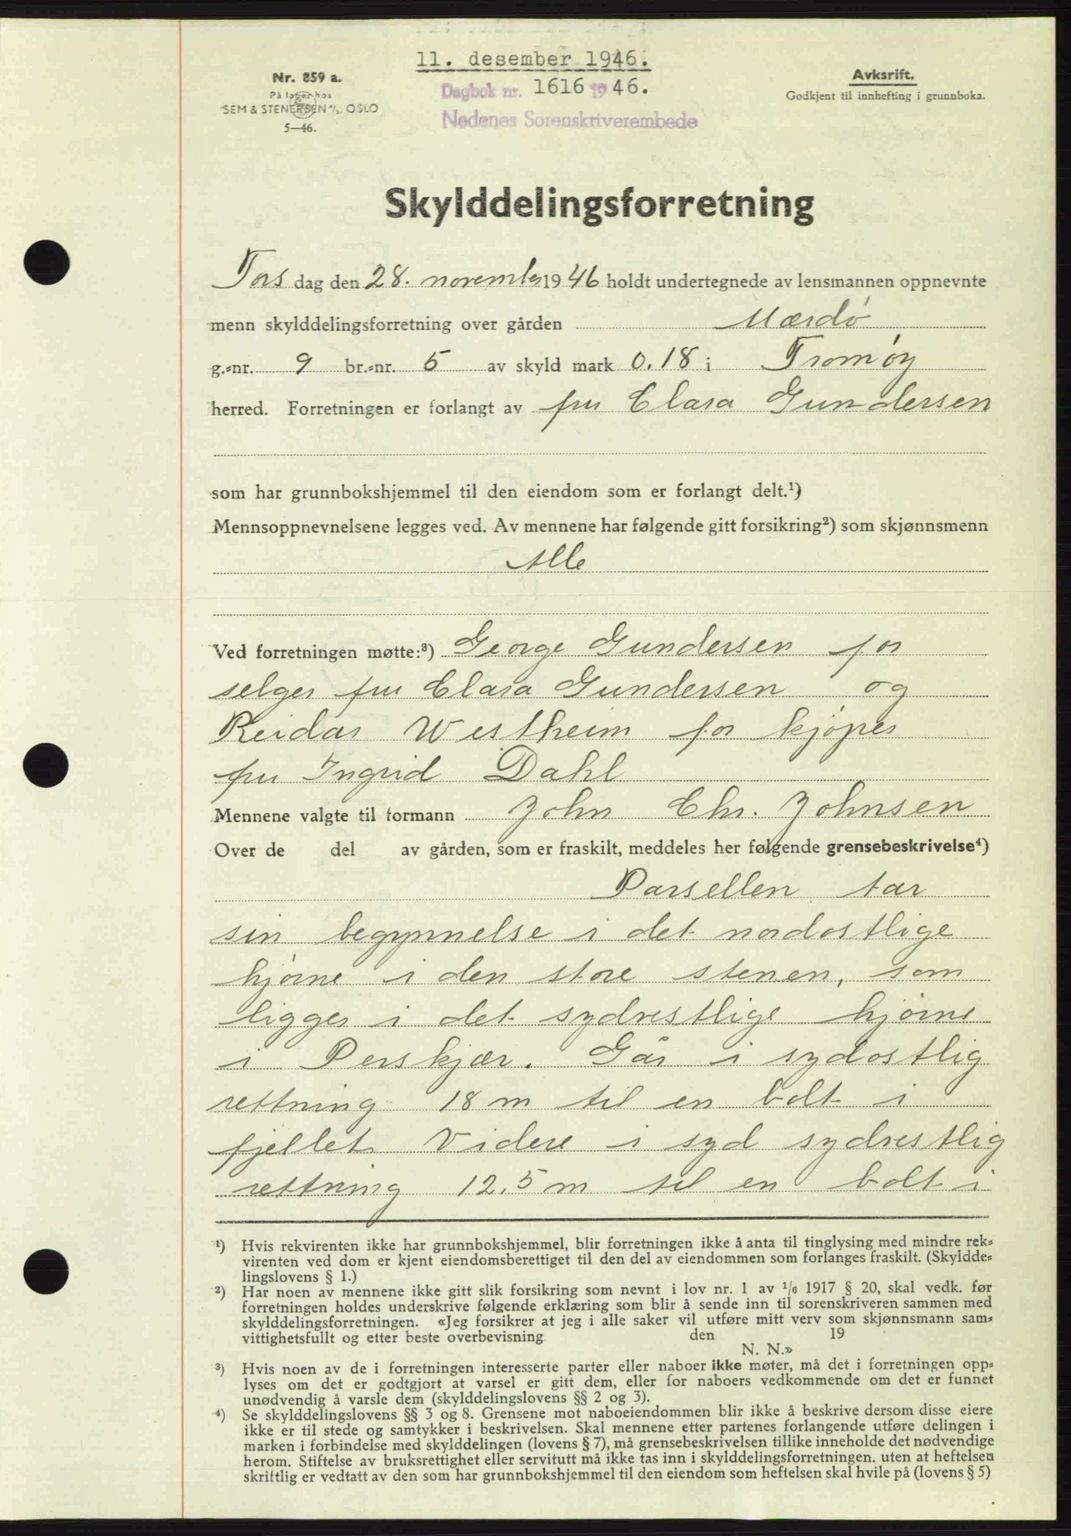 11. desember 1946.
Nr. 859 a.
På lager hos
SEM & STENERSEN A/S. OSLO
5—46.
Dagbok nr. 1616 1946.
Nedenes Sorenskriverembede
Avksrift.
Godkjent til innhefting i grunnboka.
Skylddelingsforretning
Torsdag den 28. november 1946 holdt undertegnede av lensmannen oppnevnte
menn skylddelingsforretning over gården Mærdø
g.-nr. 9 br.-nr. 5 av skyld mark 0.18 i Tromøy
herred. Forretningen er forlangt av fru Clara Gundersen
som har grunnbokshjemmel til den eiendom som er forlangt delt.¹)
Mennsoppnevnelsene legges ved. Av mennene har følgende gitt forsikring²) som skjønnsmenn
Alle
Ved forretningen møtte:³) George Gundersen for
selger fru Clara Gundersen og
Reidar Westheim for kjøper
fru Ingrid Dahl
Mennene valgte til formann John Chr. Johnsen
Over de del av gården, som er fraskilt, meddeles her følgende grensebeskrivelse⁴)
Parsellen tar
sin begynnelse i det nordostlige
hjørne i den store stenen, som
ligger i det sydvestlige hjørne
i Perskjær. Går i sydostlig
rettning 18 m til en bolt i
fjellet. Videre i syd sydvestlig
rettning 12.5 m til en bolt i
¹) Hvis rekvirenten ikke har grunnbokshjemmel, blir forretningen ikke å anta til tinglysing med mindre rek-
virenten ved dom er kjent eiendomsberettiget til den del av eiendommen som forlanges fraskilt. (Skyldde-
lingslovens § 1.)
²) Har noen av mennene ikke gitt slik forsikring som nevnt i lov nr. 1 av 1/6 1917 § 20, skal vedk. før
forretningen holdes underskrive følgende erklæring som blir å sende inn til sorenskriveren sammen med
skylddelingsforretningen. «Jeg forsikrer at jeg i alle saker vil utføre mitt verv som skjønnsmann sam-
vittighetsfullt og etter beste overbevisning den 19
N. N.»
³) Hvis noen av de i forretningen interesserte parter eller naboer ikke møter, må det i forretningen opp-
lyses om det er godtgjort at varsel er gitt dem, eller for naboers vedkommende om det er funnet
unødvendig å varsle dem (skylddelingslovens §§ 2 og 3).
⁴) Se skylddelingslovens §§ 3 og 8. Grensene mot naboeiendommen blir ikke å beskrive dersom disse eiere
ikke er til stede og samtykker i beskrivelsen. Skal mennene etter partenes forlangende utføre delingen i
marken i forbindelse med skylddelingen (lovens § 7), må grensebeskrivelsen tillike inneholde det nødvendige
herom. Stiftelse av bruksrettighet eller servitutt må ikke tas inn i skylddelingsforretningen. uten at heftelsen
skriftlig er vedtatt av den som har grunnbokshjemmel til den eiendom som heftelsen skal hvile på (lovens § 5)